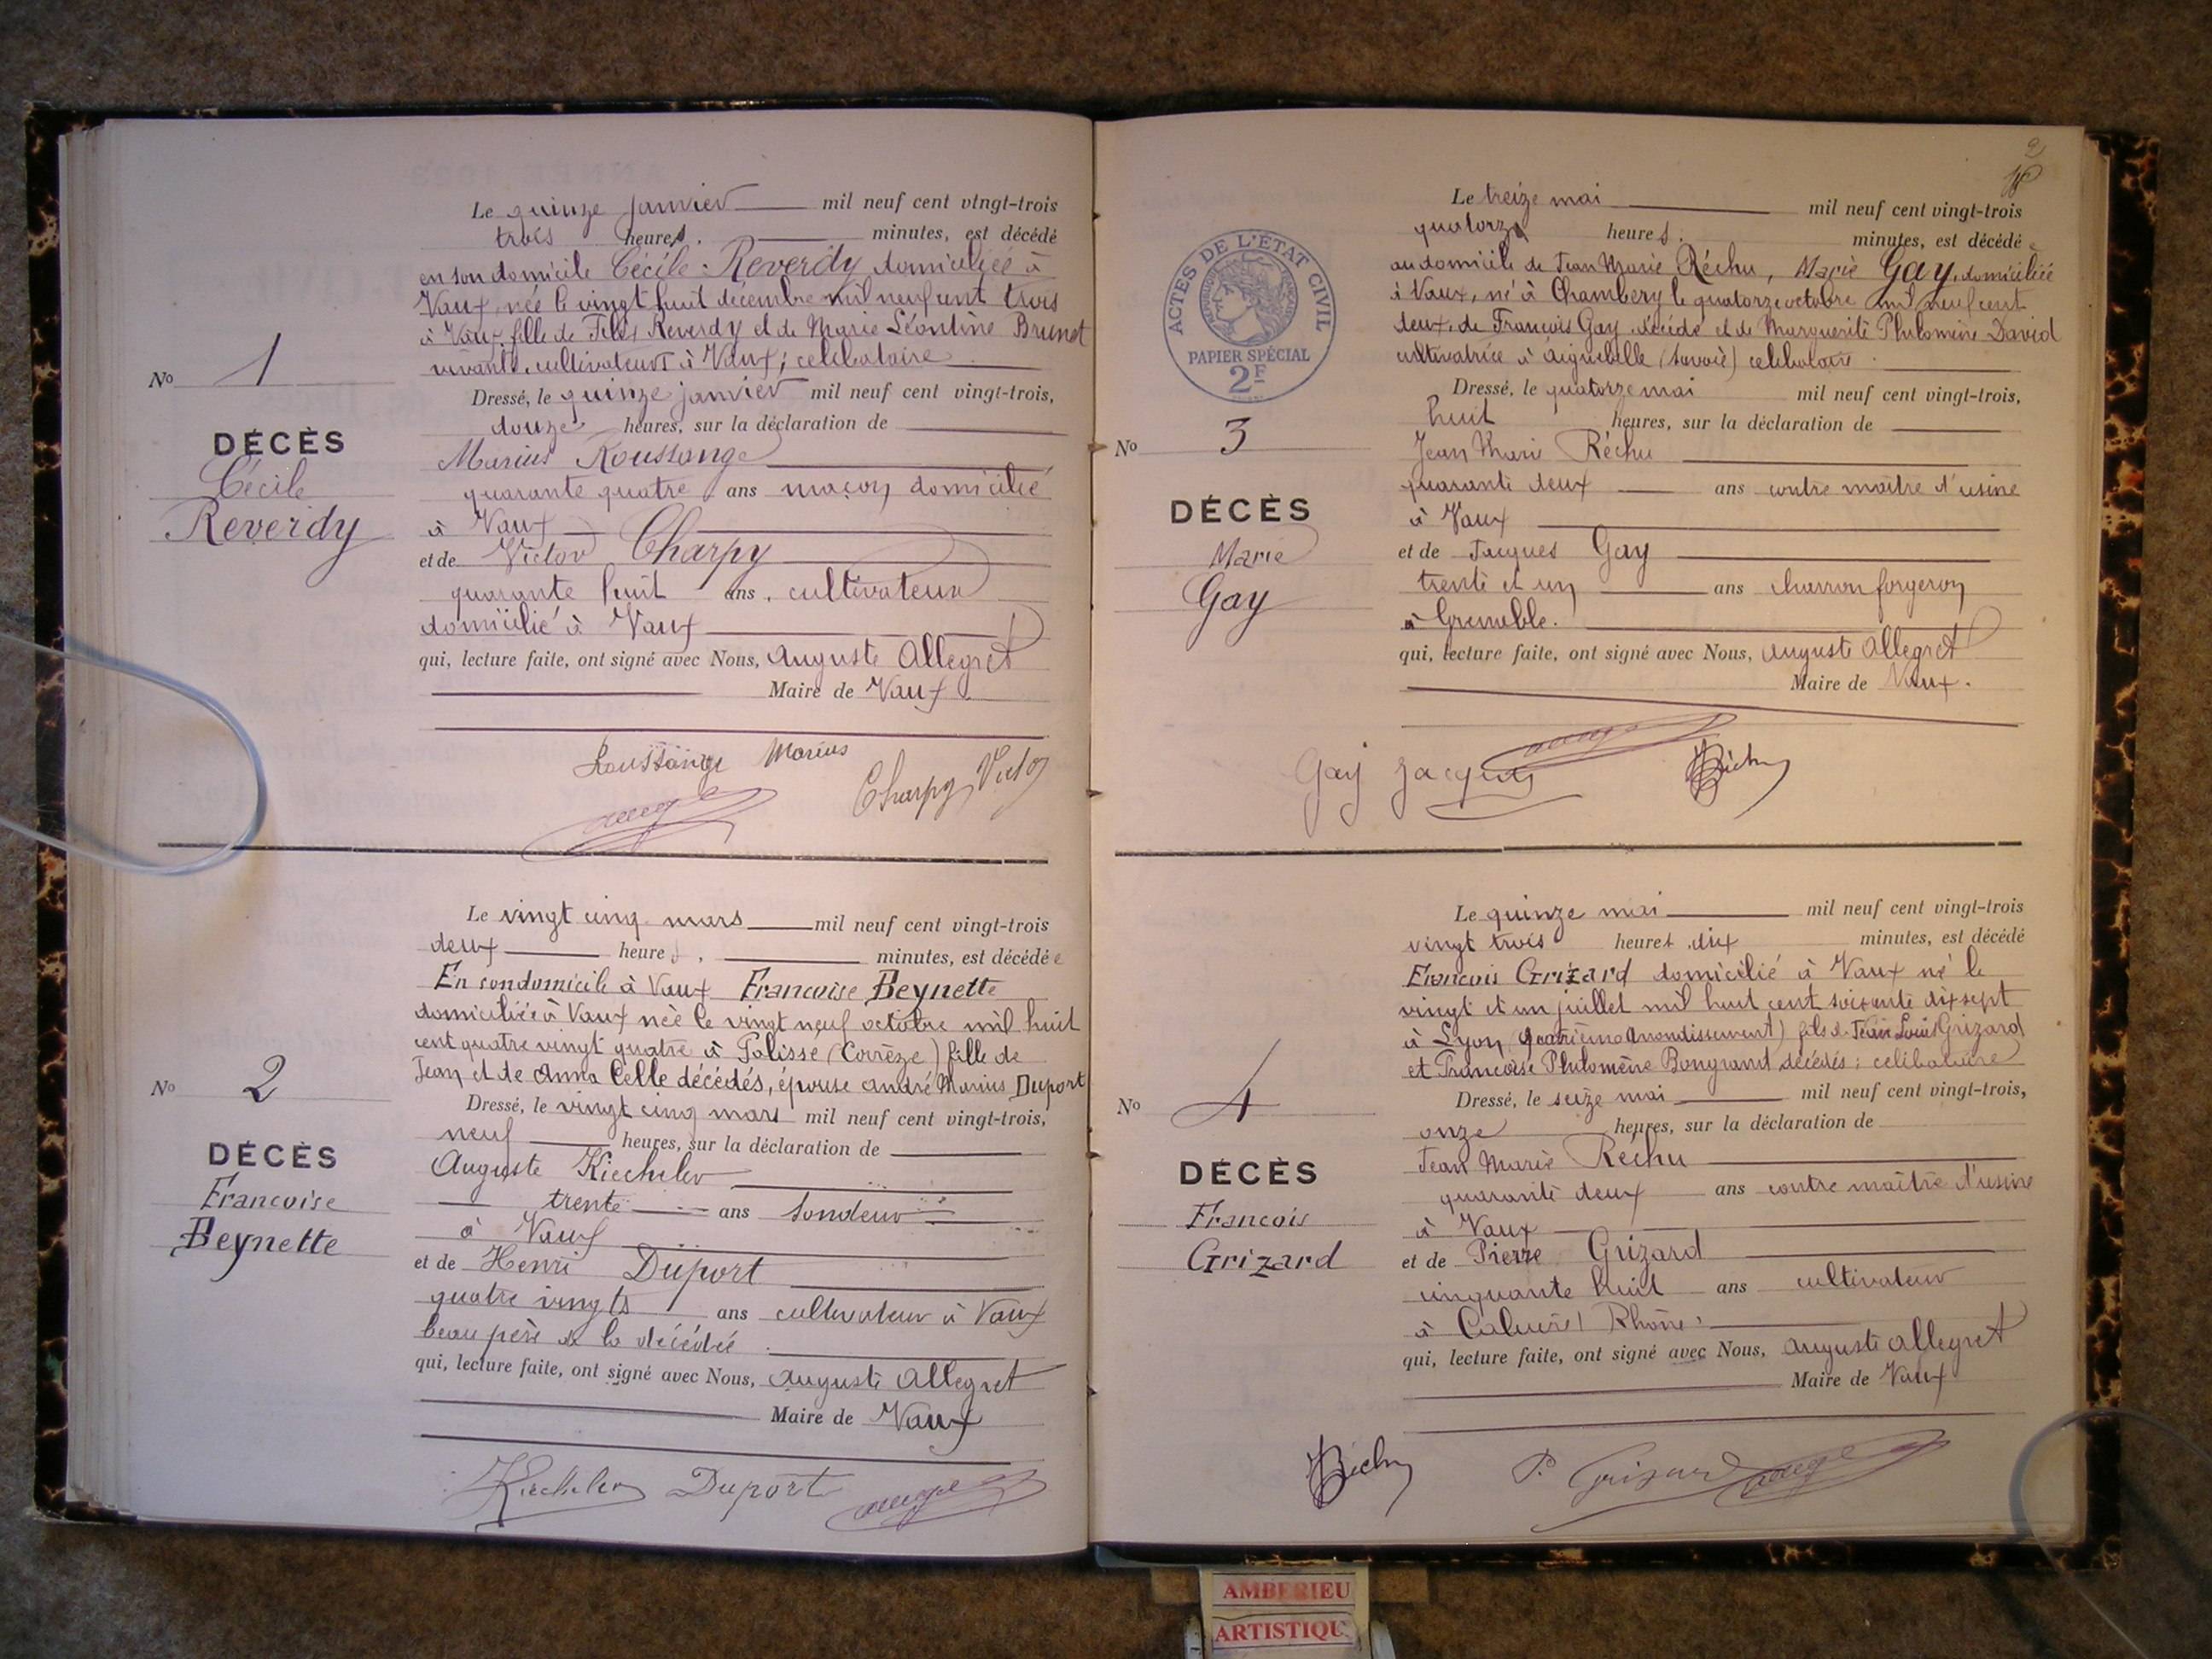 No 1
DÉCÈS
Cécile
Reverdy
Le quinze janvier mil neuf cent vingt-trois
trois heures, minutes, est décédé
en son domicile Cécile Reverdy domiciliée à
Vaux, née le vingt huit décembre mil neuf cent trois
à Vaux fille de Reverdy et de Marie Léontine Brunet
vivants, cultivateurs à Vaux; célibataire
Dressé, le quinze janvier mil neuf cent vingt-trois,
douze heures, sur la déclaration de
Marius Roussange
quarante quatre ans maçon domicilié
à Vaux
et de Victor Charpy
quarante huit ans, cultivateur
domicilié à Vaux
qui, lecture faite, ont signé avec Nous, Auguste Allegret
Maire de Vaux
Roussange Marius
Charpy Victor
No 2
DÉCÈS
Francoise
Beynette
Le vingt cinq mars mil neuf cent vingt-trois
deux heures, minutes, est décédée
En son domicile à Vaux Francoise Beynette
domiciliée à Vaux née le vingt neuf octobre mil huit
cent quatre vingt quatre à Palisse (Corrèze) fille de
Jean et de Anna Celle décédés, épouse André Marius Duport
Dressé, le vingt cinq mars mil neuf cent vingt-trois,
neuf heures, sur la déclaration de
Auguste Kiechelev
trente ans Sondeur
à Vaux
et de Henri Duport
quatre vingts ans cultivateur à Vaux
beau père de la décédée
qui, lecture faite, ont signé avec Nous, Auguste Allegret
Maire de Vaux
Duport
2
ACTES DE L'ÉTAT CIVIL
RÉPUBLIQUE FRANÇAISE
PAPIER SPÉCIAL
2F
No 3
DÉCÈS
Marie
Gay
Le treize mai mil neuf cent vingt-trois
quatorze heures. minutes, est décédée
au domicile de Jean Marie Réchu, Marie Gay, domiciliée
à Vaux, né à Chambery le quatorze octobre mil neuf cent
deux, de François Gay décédé et de Marguerite Philomène David
cultivatrice à Aiguebelle (Savoie) célibataire.
Dressé, le quatorze mai mil neuf cent vingt-trois,
huit heures, sur la déclaration de
Jean Marie Réchu
quarante deux ans contre maître d'usine
à Vaux
et de Jacques Gay
trente et un ans charron forgeron
à Grenoble.
qui, lecture faite, ont signé avec Nous, Auguste Allegret
Maire de Vaux.
Gay Jacques
No 4
DÉCÈS
Francois
Grizard
Le quinze mai mil neuf cent vingt-trois
vingt trois heures dix minutes, est décédé
Francois Grizard domicilié à Vaux né le
vingt et un juillet mil huit cent soixante dix sept
à Lyon (quatrième arrondissement) fils de Jean Louis Grizard
et Francoise Philomène Bongrand décédés; célibataire
Dressé, le seize mai mil neuf cent vingt-trois,
onze heures, sur la déclaration de
Jean Marie Réchu
quarante deux ans contre maître d'usine
à Vaux
et de Pierre Grizard
cinquante huit ans cultivateur
à Caluire Rhône
qui, lecture faite, ont signé avec Nous, Auguste Allegret
Maire de Vaux
P. Grizard
AMBERIEU
ARTISTIQU